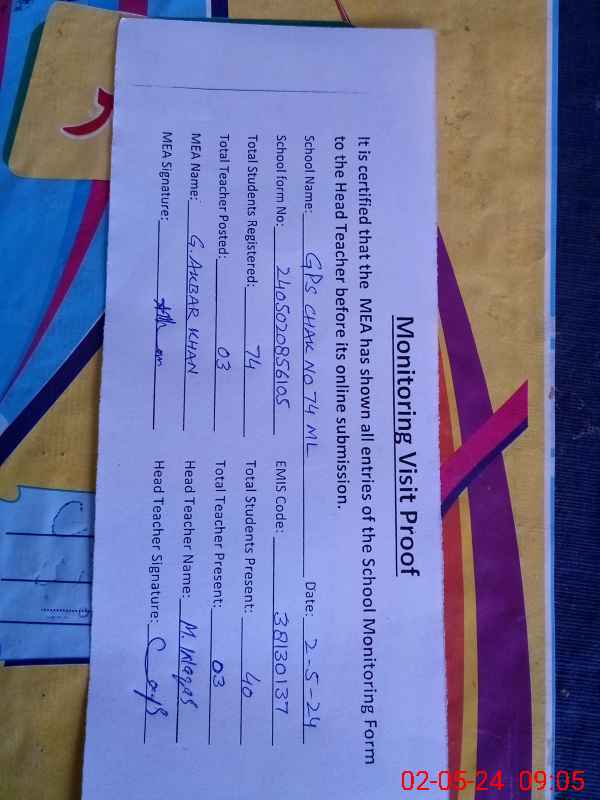 Monitoring Visit Proof
It is certified that the MEA has shown all entries of the School Monitoring Form
to the Head Teacher before its online submission.
School Name: GPS CHAK NO 74 ML Date: 2-5-24
School form No: 2405020856105 EMIS Code: 38130137
Total Students Registered: 74 Total Students Present: 40
Total Teacher Posted: 03 Total Teacher Present: 03
MEA Name: G. AKBAR KHAN Head Teacher Name: M. Waqas
MEA Signature: Head Teacher Signature:
02-05-24 09:05